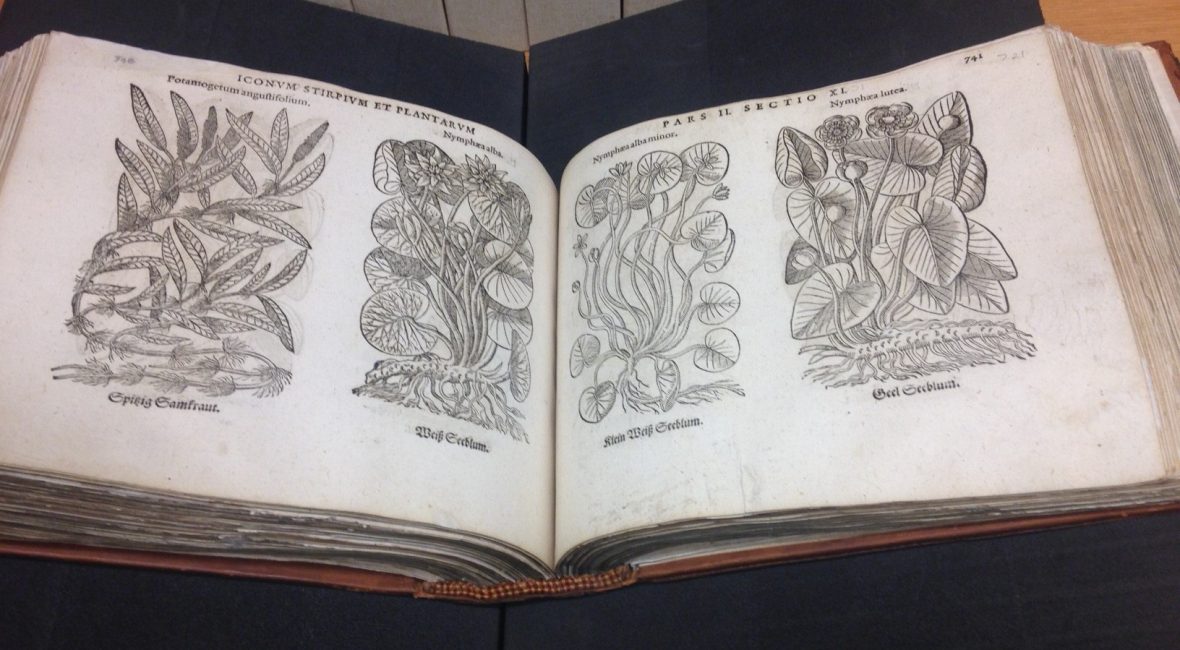 740
ICONVM STIRPIVM ET PLANTARVM
Potamogetum angustifolium.
Nymphæa alba.
Spitzig Samkraut.
Weiß Seeblum.
741
PARS II. SECTIO XI.
Nymphæa alba minor.
Nymphæa lutea.
Klein Weiß Seeblum.
Geel Seeblum.